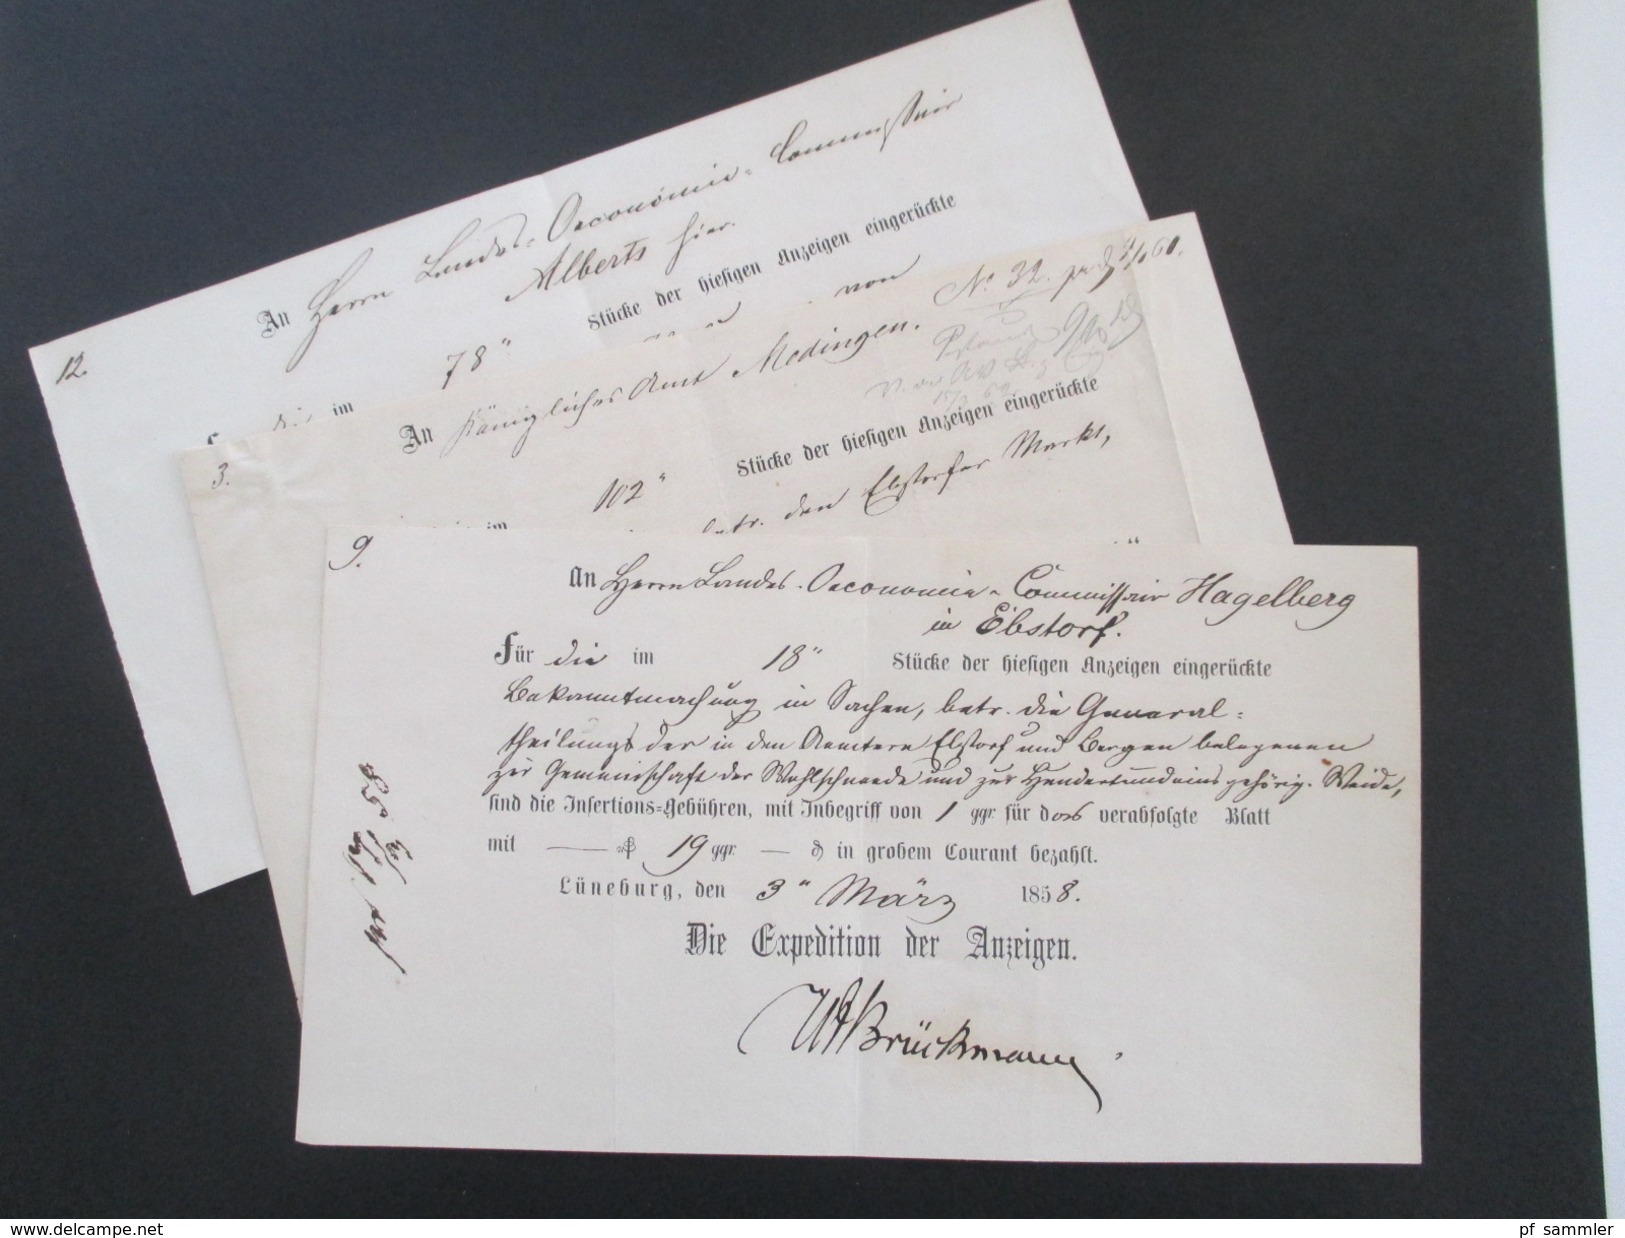 12.
An Herrn Landes-Oeconomie-Commissair
Alberts hier.
78" Stücke der hiesigen Anzeigen eingerückte
im von
3.
An Königliches Amt Medingen. No. 32.
102" Stücke der hiesigen Anzeigen eingerückte
betr. den Ebstorfer Markt,
9.
An Herrn Landes-Oeconomie-Commissair Hagelberg
in Ebstorf.
Für die im 18" Stücke der hiesigen Anzeigen eingerückte
Bekanntmachung in Sachen, betr. die General-
theilung der in den Aemtern Ebstorf und Bergen belegenen
zur Gemeinschaft der und zur gehörig. Weide,
sind die Insertions-Gebühren, mit Inbegriff von 1 ggr. für das verabfolgte Blatt
mit — 19 ggr. — in grobem Courant bezahlt.
Lüneburg, den 3" März 1858.
Die Expedition der Anzeigen.
Brückmann
www.delcampe.net
pf_sammler